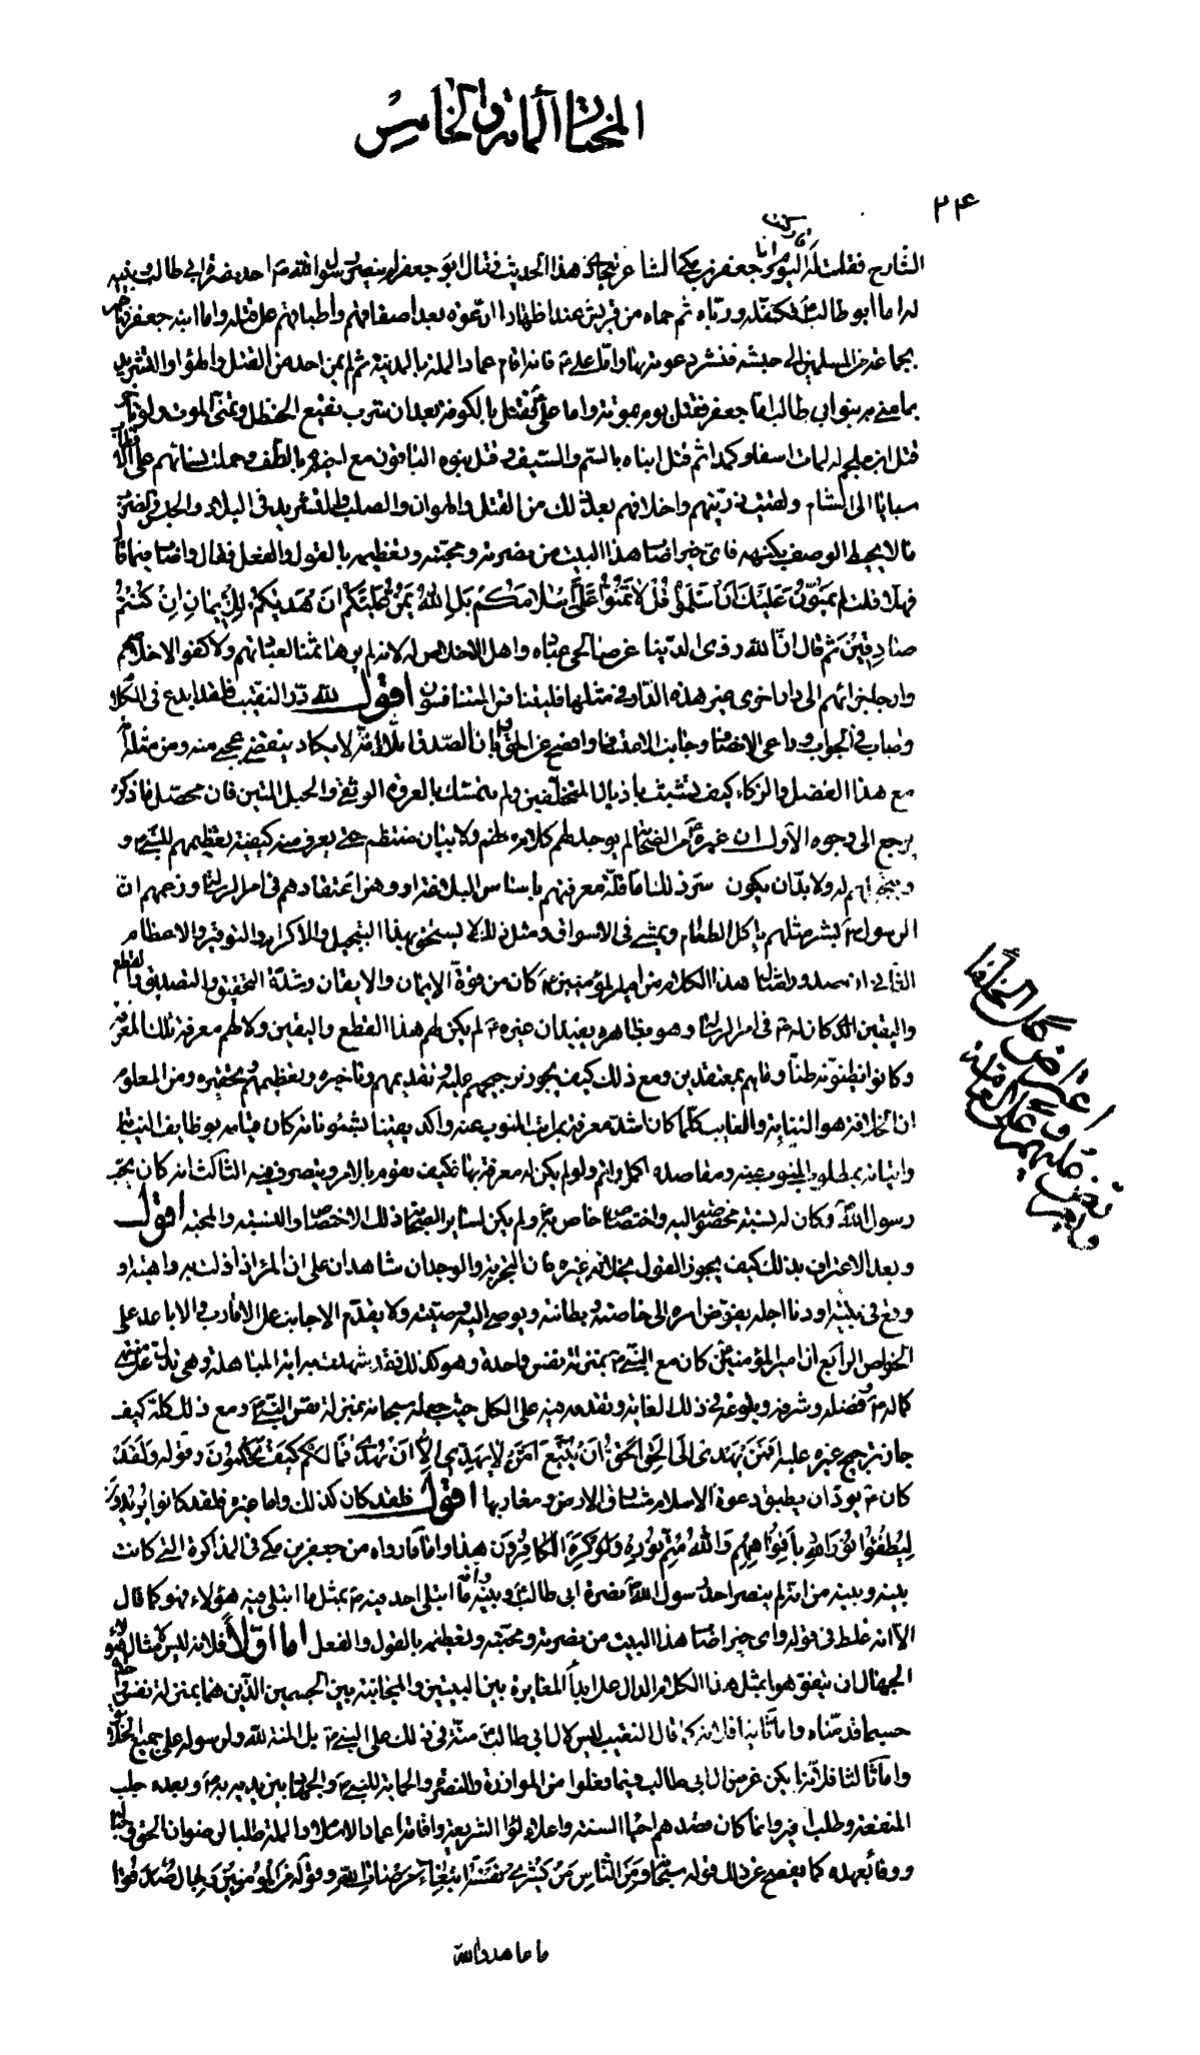 المختار المائة والخامس
٢۴
الشارح فقلت له اليوم وكنت انا وجعفر بن مكي الشاعر نتجاذب هذا الحديث فقال ابو جعفر لم ينصر رسول الله ص احد نصرة ابي طالب وبنيه
له اما ابو طالب فكفله ورباه ثم حماه من قريش عند اظهار الدعوة بعد اصفاقهم واطباقهم على قتله واما ابنه جعفر فهاجر
بجماعة من المسلمين الى حبشه فنشر دعوته بها واما علي ع فانه اقام عماد الملة بالمدينة ثم لم يمن احد من القتل والهوان والتشريد
بما مني به بنو ابي طالب اما جعفر فقتل يوم موتة واما علي فقتل بالكوفة بعد ان شرب نقيع الحنظل وتمنى الموت ولو تأخر
قتل ابن ملجم له لمات اسفا وكمدا ثم قتل ابناه بالسم والسيف وقتل بنوه الباقون مع اخيهم بالطف وحملت نساؤهم على الاقتاب
سبايا الى الشام ولقيت ذريتهم واخلافهم بعد ذلك من القتل والهوان والصلب والتشريد في البلاد والحبس والضرب
ما لا يحيط الوصف بكنهه فاي خير اصاب هذا البيت من نصرته ومحبته وتعظيمه بالقول والفعل فقال واصاب فيما قال
فهلا قلت يمنون عليك ان اسلموا قل لا تمنوا علي اسلامكم بل الله يمن عليكم ان هديكم للايمان ان كنتم
صادقين ثم قال ان الله زوى الدنيا عن صالحي عباده واهل الاخلاص له لانه لم يرها ثمنا لعبادتهم ولا كفوا لاخلاصهم
وارجأ جزائهم الى دار اخرى غير هذه الدار في مثلها فليتنافس المتنافسون اقول لله در النقيب فلقد ابدع في الكلام
واصاب في الجواب وراعى الانصاف وجانب الاعتساف وافصح عن الحق وابان الصدق الا انه لا يكاد ينقضي عجبي منه ومن مثله
مع هذا الفضل والذكاء كيف تشبث باذيال المتخلفين ولم يتمسك بالعروة الوثقى والحبل المتين فان محصل ما ذكره
يرجع الى وجوه الاول ان غيره من الصحابة لم يوجد لهم كلام منظم ولا بيان منتظم حتى يعرف منه كيفية تعظيمهم للنبي ص و
وتبجيلهم له ولا بد ان يكون سر ذلك اما قلة معرفتهم باساس البلاغة او وهن اعتقادهم في امر الرسالة وزعمهم ان
الرسول ص بشر مثلهم يأكل الطعام ويمشي في الاسواق ومثل ذلك لا يستحق بهذا التبجيل والاكرام والتوقير والاعظام
الثاني ان صدور امثال هذا الكلام من امير المؤمنين ع كان من قوة الايمان والايقان وشدة التحقيق والتصديق والقطع
واليقين الذي كان له ع في امر الرسالة وهو بظاهره يفيد ان غيره ع لم يكن لهم هذا القطع واليقين ولا لهم معرفة تلك المعرفة
وكانوا يظنونه ظنا وفاهم بمعتقدين ومع ذلك كيف يجوز ترجيحهم عليه وتقديمهم وتأخيره وتعظيمهم وتحقيره ومن المعلوم
ان الخلافة هو النيابة والنايب كلما كان اشد معرفة بمراتب المنوب عنه واكد يقينا بشئونه كان قيامه بوظايف النيابة
واتيانه بمطلوب المنوب عنه ومقاصده اكمل واتم ولو لم يكن له معرفة بها فكيف يقوم بالامر ويتصرف فيه الثالث انه كان يحب
رسول الله ص وكان له نسبة مخصوصة اليه واختصاص خاص به ولم يكن لساير الصحابة ذلك الاختصاص والنسبة والمحبة اقول
وبعد الاعتراف بذلك كيف يجوز القول بخلافة غيره فان التجربة والوجدان شاهدان على ان المرء اذا نزلت به داهية او
وقع في بلية او دنا اجله يفوض امره الى خاصته وبطانته ويوصي اليه وصيته ولا يقدم الاجانب على الاقارب والاباعد على
الخواص الرابع ان امير المؤمنين كان مع النبي ص بمنزلة نفس واحدة وهو كذلك فقد شهدت به اية المباهلة وهي تدل على مزية
كماله ع وفضله وشرفه وبلوغه في ذلك الغاية وتقدمه فيه على الكل حيث جعله سبحانه بمنزلة نفس النبي ص ومع ذلك كله كيف
جاز ترجيح غيره عليه افمن يهدي الى الحق احق ان يتبع امن لا يهدي الا ان يهدى فما لكم كيف تحكمون وقوله ولقد
كان ع يود ان يطبق دعوة الاسلام مشارق الارض ومغاربها اقول فلقد كان كذلك واما غيره فلقد كانوا يريدون
ليطفئوا نور الله بافواههم والله متم نوره ولو كره الكافرون هذا واما ما رواه من جعفر بن مكي في المذاكرة التي كانت
بينه وبينه من انه لم ينصر احد رسول الله ص نصرة ابي طالب وبنيه له وانه ما ابتلى احد فيه ع بمثل ما ابتلى فيه هؤلاء فهو كما قال
الا انه غلط في قوله واي خير اصاب هذا البيت من نصرته ومحبته وتعظيمه بالقول والفعل اما اولا فلانه ليس لامثال هؤلاء
الجهال ان يتفوهوا بمثل هذا الكلام الدال على المغايرة بين البيتين والمجانبة بين الجسمين الذين هما بمنزلة نفس واحدة
حسبما قدمناه واما ثانيا فلانه كما قال النقيب ليس لآل ابي طالب منة في ذلك على النبي ص بل المنة لله ولرسوله على جميع الخلايق
واما ثالثا فلانه لم يكن غرض آل ابي طالب فيما فعلوا من الموازرة والنصرة والحماية للنبي ص والجهاد بين يديه به ص وبعده جلب
المنفعة وطلب الخير وانما كان قصدهم احياء السنة واعلاء لواء الشريعة واقامة اعماد الاسلام والملة طلبا لرضوان الحق
ووفاء بعهده كما يفصح عن ذلك قوله سبحانه ومن الناس من يشري نفسه ابتغاء مرضات الله وقوله من المؤمنين رجال صدقوا
ما عاهدوا الله
اعتراض على الخلفاء